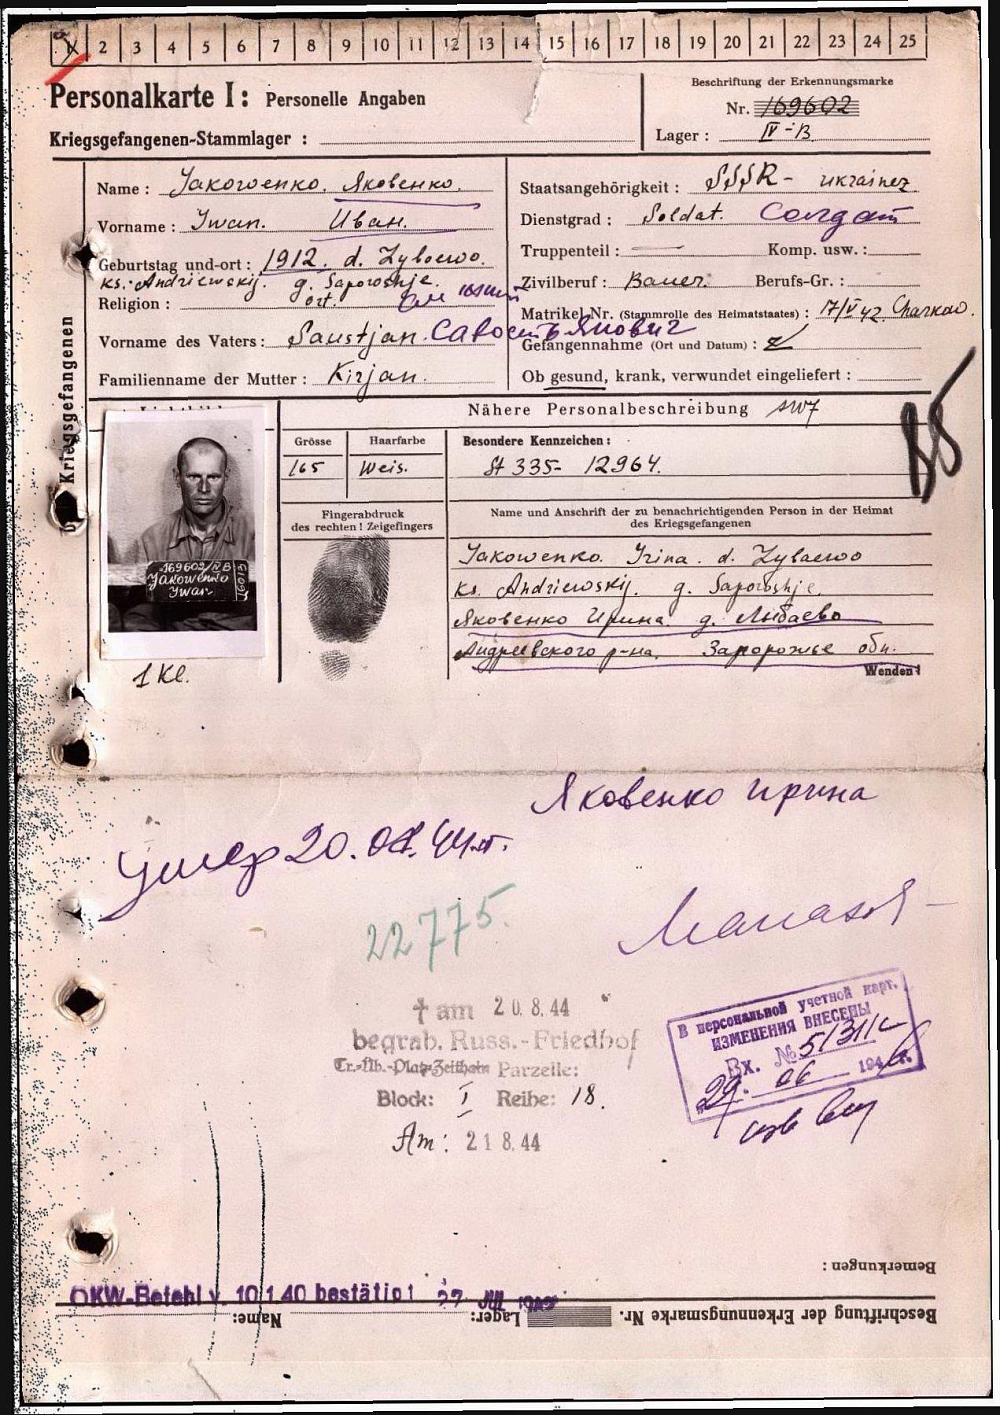 1 2 3 4 5 6 7 8 9 10 11 12 13 14 15 16 17 18 19 20 21 22 23 24 25
Personalkarte I: Personelle Angaben
Kriegsgefangenen-Stammlager :
Beschriftung der Erkennungsmarke
Nr. 169602
Lager : IV-B
des Kriegsgefangenen
Name : Jakowenko. Яковенко.
Vorname : Iwan. Иван.
Geburtstag und-ort : 1912. d. Lybaewo.
ks. Andriewskij. g. Saporoshje.
Religion : ort.
Vorname des Vaters : Saustjan. Савостьянович
Familienname der Mutter : Kirjan.
Staatsangehörigkeit : SSSR- ukrainez
Dienstgrad : Soldat. Солдат
Truppenteil : Komp. usw. :
Zivilberuf : Bauer. Berufs-Gr. :
Matrikel Nr. (Stammrolle des Heimatstaates) : 17/V 42 Charkow.
Gefangennahme (Ort und Datum) :
Ob gesund, krank, verwundet eingeliefert :
Lichtbild
169602/IVB
Jakowenko
Iwan
1 Kl.
Nähere Personalbeschreibung
Grösse
165
Haarfarbe
Weis.
Besondere Kennzeichen :
St 335- 12964.
85
Fingerabdruck
des rechten ! Zeigefingers
Name und Anschrift der zu benachrichtigenden Person in der Heimat
des Kriegsgefangenen
Jakowenko. Irina. d. Lybaewo
ks. Andriewskij. g. Saporoshje.
Яковенко Ирина д. Любаево
Андреевского р-на. Запорожье обл.
Wenden!
Яковенко Ирина
Умер 20.08.44 г.
22775.
† am 20.8.44
begrab. Russ.-Friedhof
Tr.-Üb.-Platz Zeithain Parzelle:
Block: I Reihe: 18.
Am: 21 8.44
В персональной учетной карт.
ИЗМЕНЕНИЯ ВНЕСЕНЫ
Вх. № 51311с
"29" 06 1946 г.
Bemerkungen :
OKW-Befehl v. 10 1.40 bestätigt 27. JUL 1942
Beschriftung der Erkennungsmarke Nr. Lager:
Name: